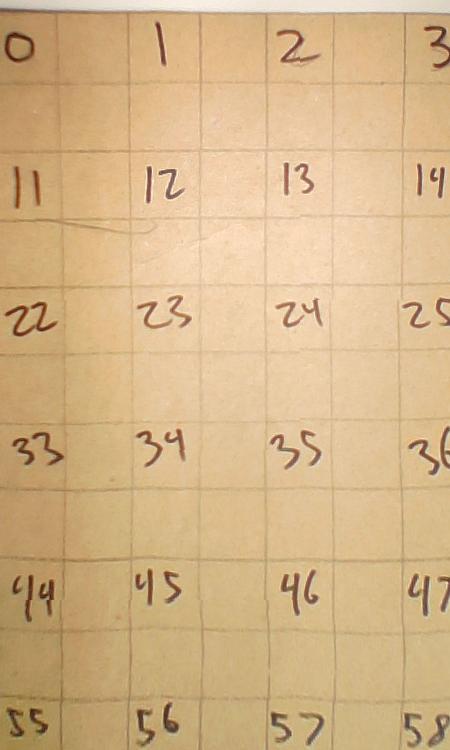 0 1 2 3
11 12 13 14
22 23 24 25
33 34 35 36
44 45 46 47
55 56 57 58